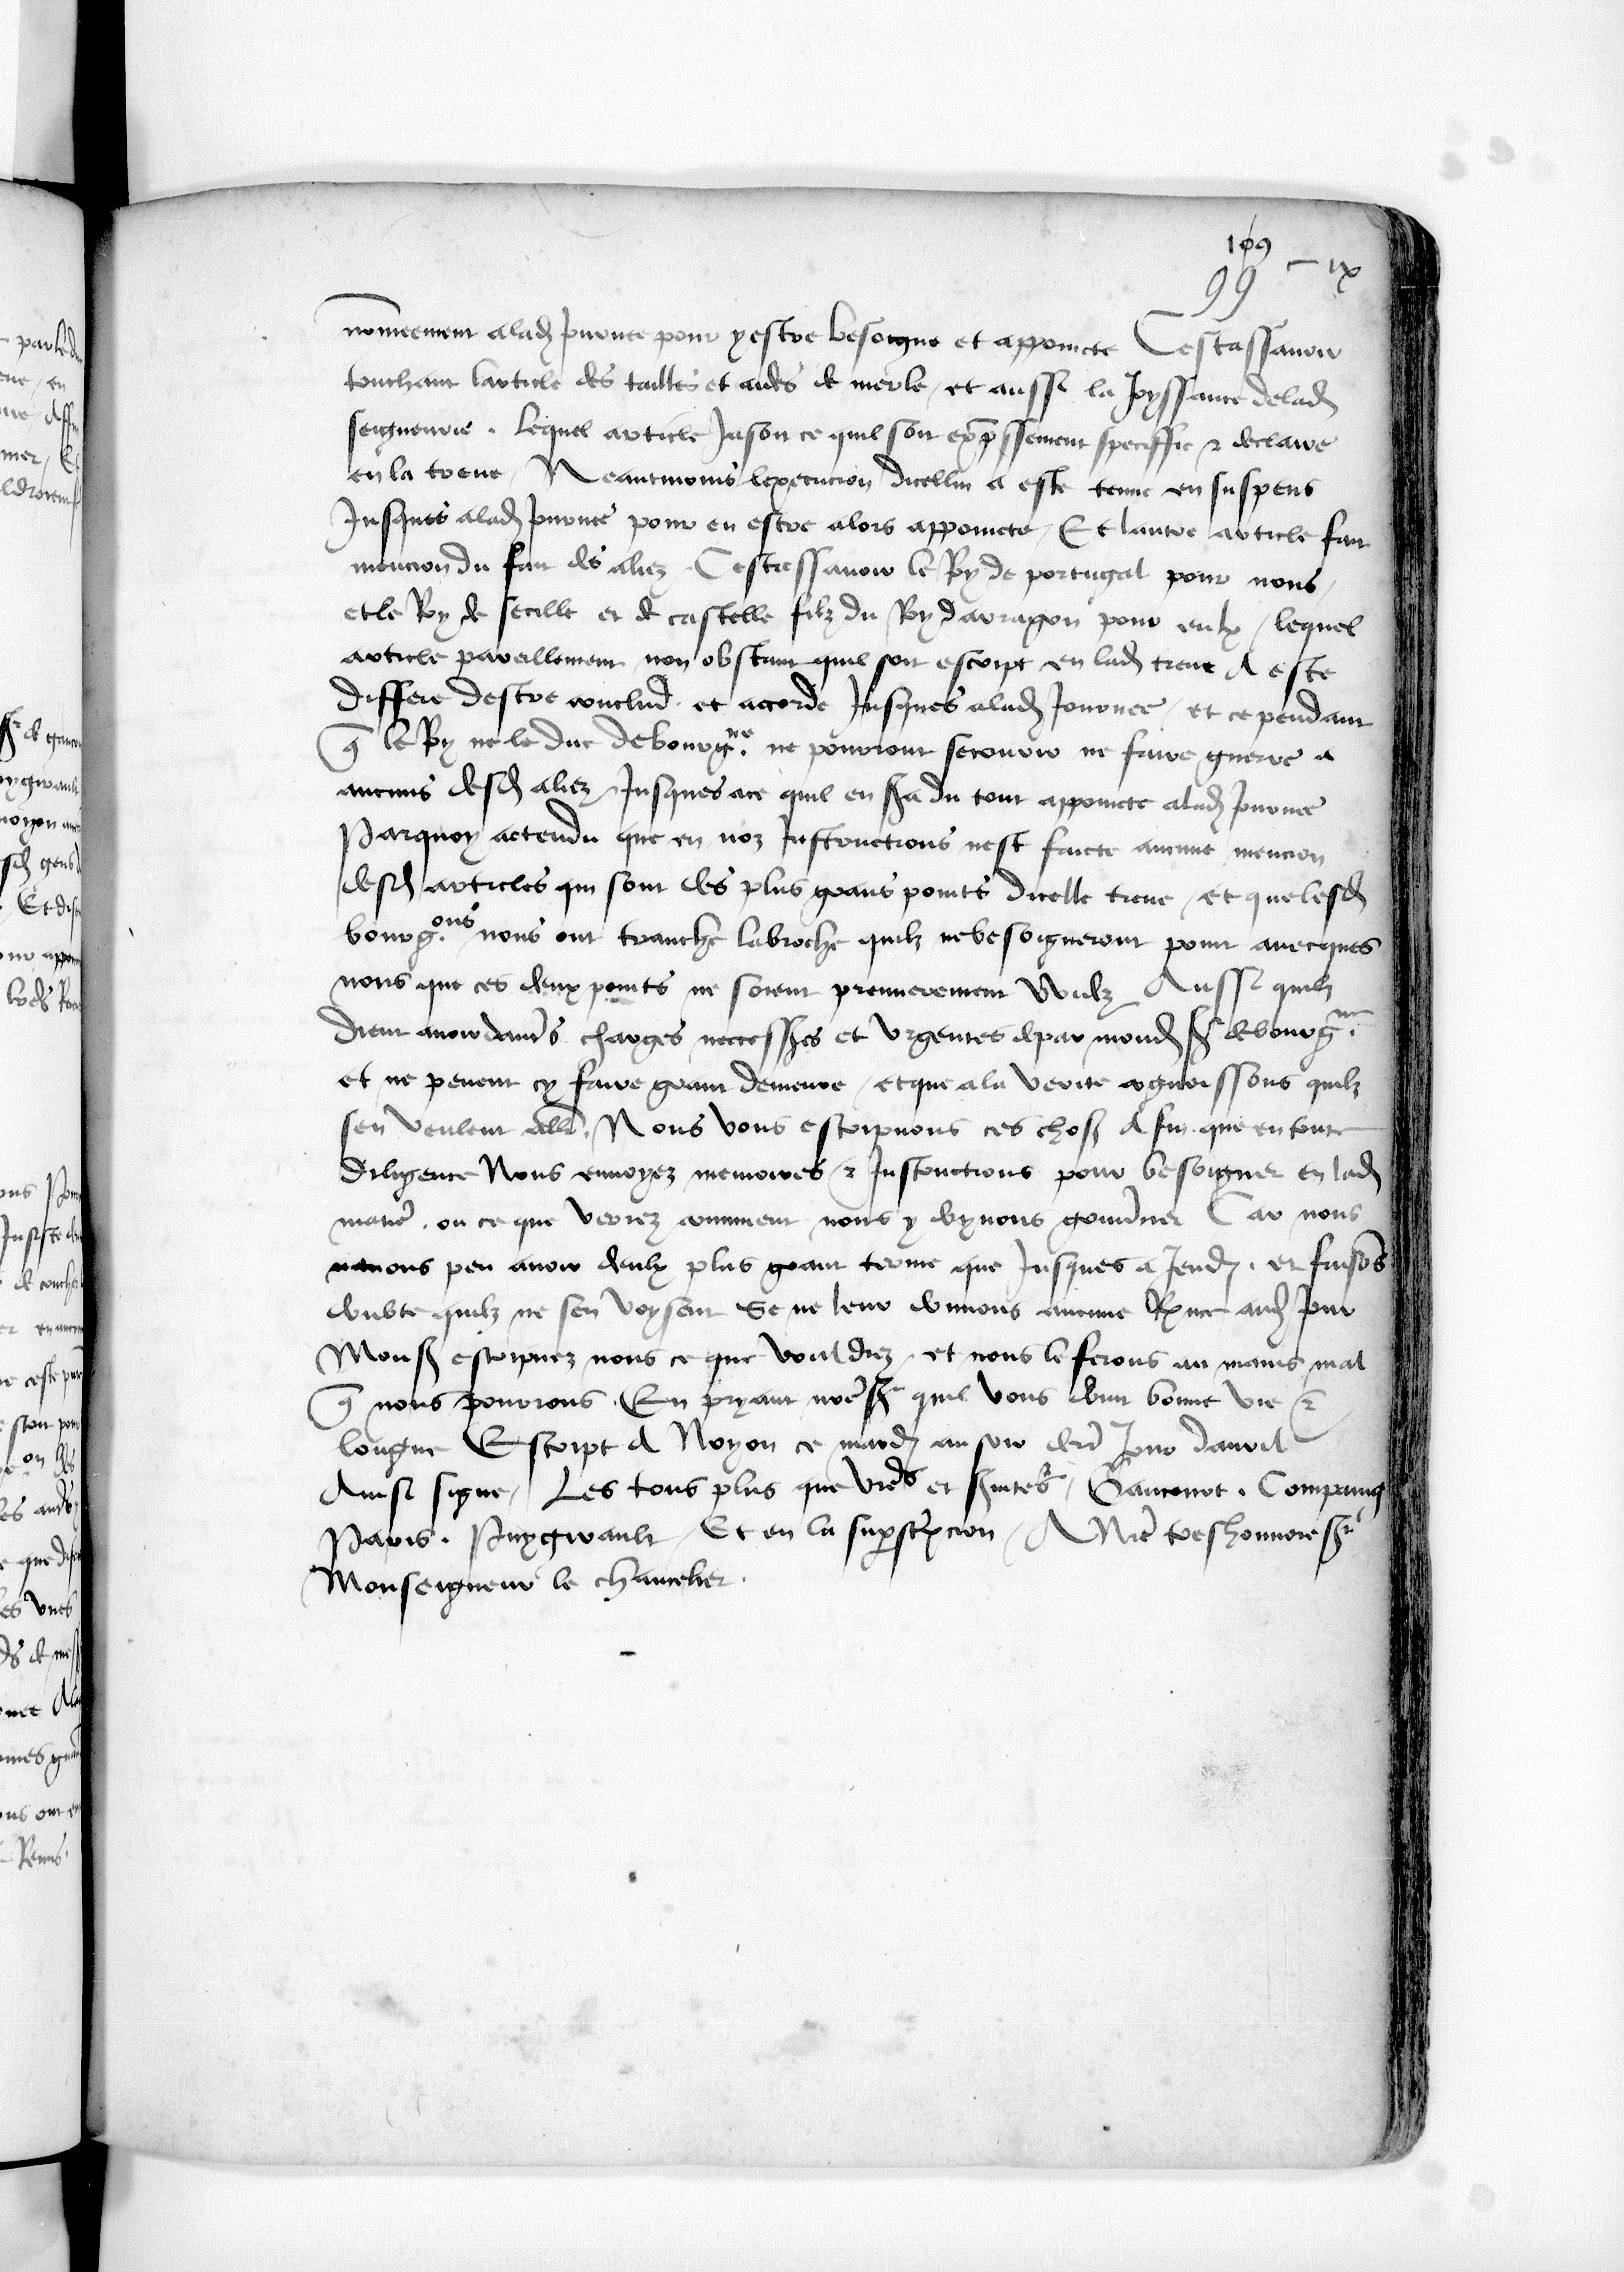 109
99 — ix
nommeement a lad journee pour y estre besoigne et appoincte Cestassavoir
touchant larticle des tailles et aides de merle / et aussi la Joyssance de lad
seigneurie . Lequel article Jasoit ce quil soit expressement speciffie & declaire
en la treve / Neantmoins lexecucion dicellui a este tenue en suspens
Jusques a lad journee pour en estre alors appoincte / Et lautre article fait
mencion du fait des aliez . Cestassavoir le Roy de portugal pour nous /
et le Roy de secille et de castelle filz du Roy darragon pour eulx / lequel
article pareillement non obstant quil soit escript en lad treve A este
differe destre conclud et accorde Jusques a lad Journee / et ce pendant
q le Roy ne le duc de bourg.ne ne pourront secourir ne faire guerre a
aucuns desd aliez / Jusques ace quil en sera du tout appoincte a lad journee
Parquoy actendu que en noz Instructions nest faicte aucune mencion
desd articles qui sont des plus grans points dicelle treve / et que lesd
bourg.ons nous ont tranche la broche quilz ne besoigneront point avecques
nous que ces deux points ne soient premierement vuidz Aussi quilz
dient avoir dautres charges necessres et urgentes de par mond sr de bourg.ne
et ne pevent cy faire grant demeure / et que a la verite cognoissons quilz
sen veulent aller . Nous vous escripvons ces choses A fin que en toute
diligence Nous envoyez memoires & Instructions pour besoigner en lad
matiere . ou ce que verrez comment nous y devons gouverner Car nous
navons peu avoir deulx plus grant terme que Jusques a Jeudi . et faisons
doubte quilz ne sen voysent Se ne leur donnons aucune Rponce aud jour
Mons escripvez nous ce que vouldrez . et nous le ferons au mains mal
q nous pourrons . En pryant nostre sr quil vous doint bonne vie &
longue Escript A Noyon ce mardi au soir derr Jour davril
Ainsi signe / Les tous plus que vostres et serviteurs / Gaucourt . Compaing
Paris . Puygirault / Et en la superscripcion / A Nostre tres honnore sr
Monseigneur le chancelier .